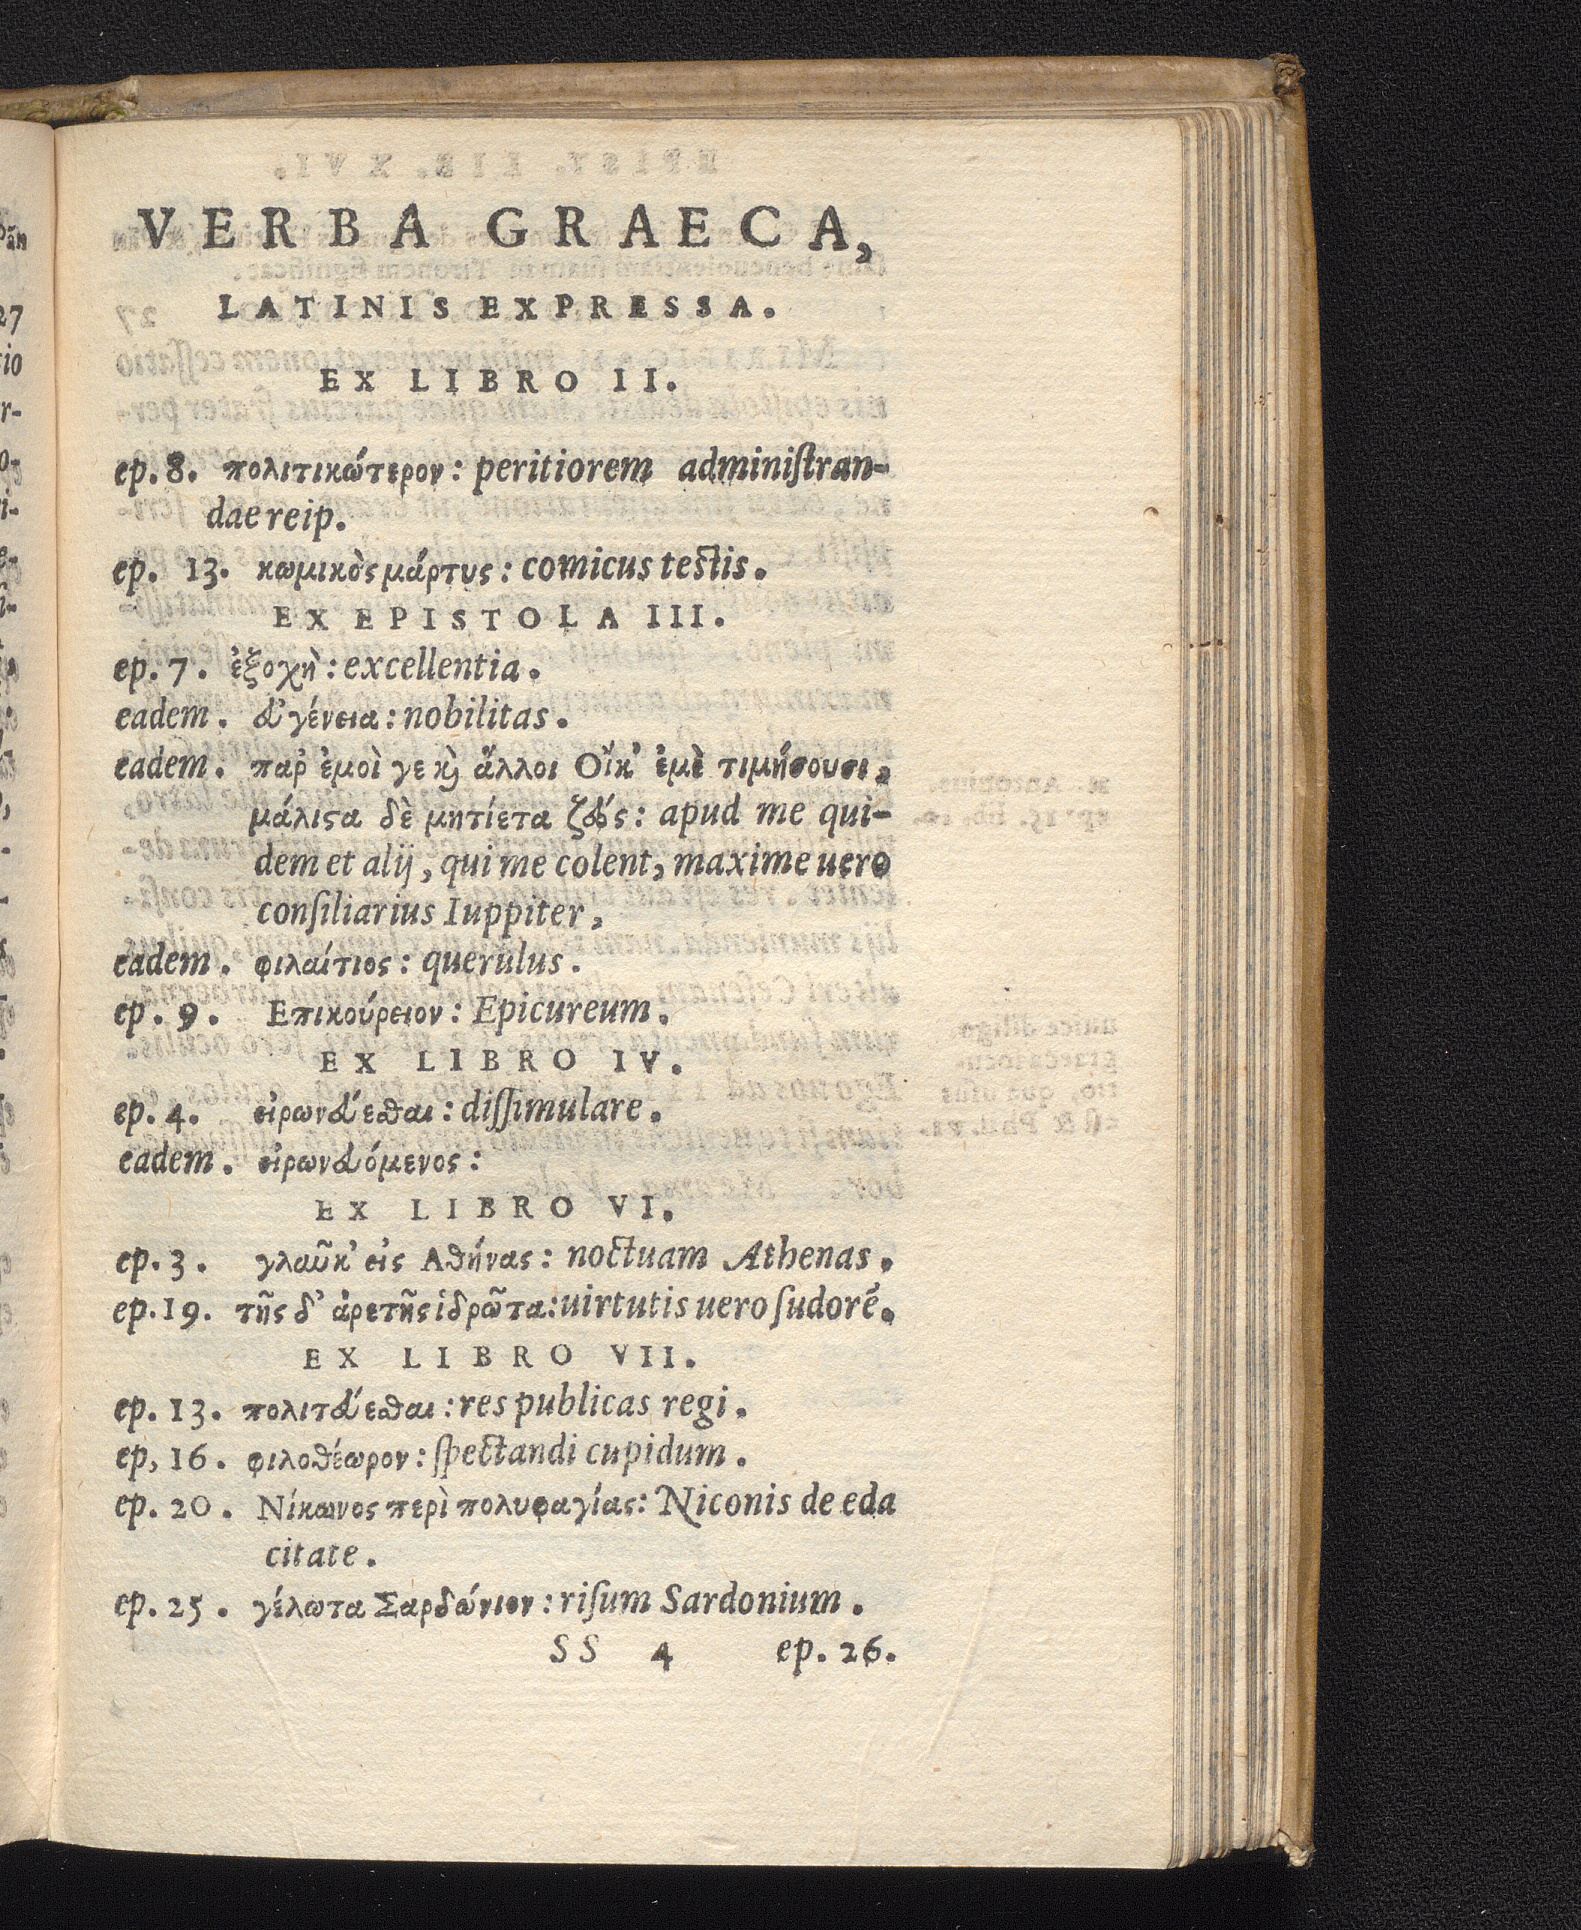 VERBA GRAECA,
LATINIS EXPRESSA.
EX LIBRO II.
ep. 8. πολιτικώτερον: peritiorem adminiſtran-
dae reip.
ep. 13. κωμικὸς μάρτυς: comicus testis.
EX EPISTOLA III.
ep. 7. ἐξοχὴ: excellentia.
eadem. ευ’γένεια: nobilitas.
eadem. παρ’ ἐμοὶ γε κὶ ἄλλοι Οἵκ’ ἐμὲ τιμήσουσι,
μάλιςα δὲ μητίετα ζεύς: apud me qui-
dem et alij, qui me colent, maxime uero
conſiliarius Iuppiter,
eadem. φιλαίτιος: querulus.
ep. 9. Επικούρειον: Epicureum.
EX LIBRO IV.
ep. 4. εἰρωνεύεσθαι: diſſimulare.
eadem. εἰρωνευόμενος:
EX LIBRO VI.
ep. 3. γλαῦκ’ εἰς Αθήνας: noctuam Athenas.
ep. 19. τῆς δ’ ἀρετῆς ἱδρῶτα: uirtutis uero ſudorē.
EX LIBRO VII.
ep. 13. πολιτεύεσθαι: res publicas regi.
ep, 16. φιλοθέωρον: ſpectandi cupidum.
ep. 20. Νίκωνος περὶ πολυφαγίας: Niconis de eda
citate.
ep. 25. γέλωτα Σαρδώνιον: riſum Sardonium.
SS 4 ep. 26.